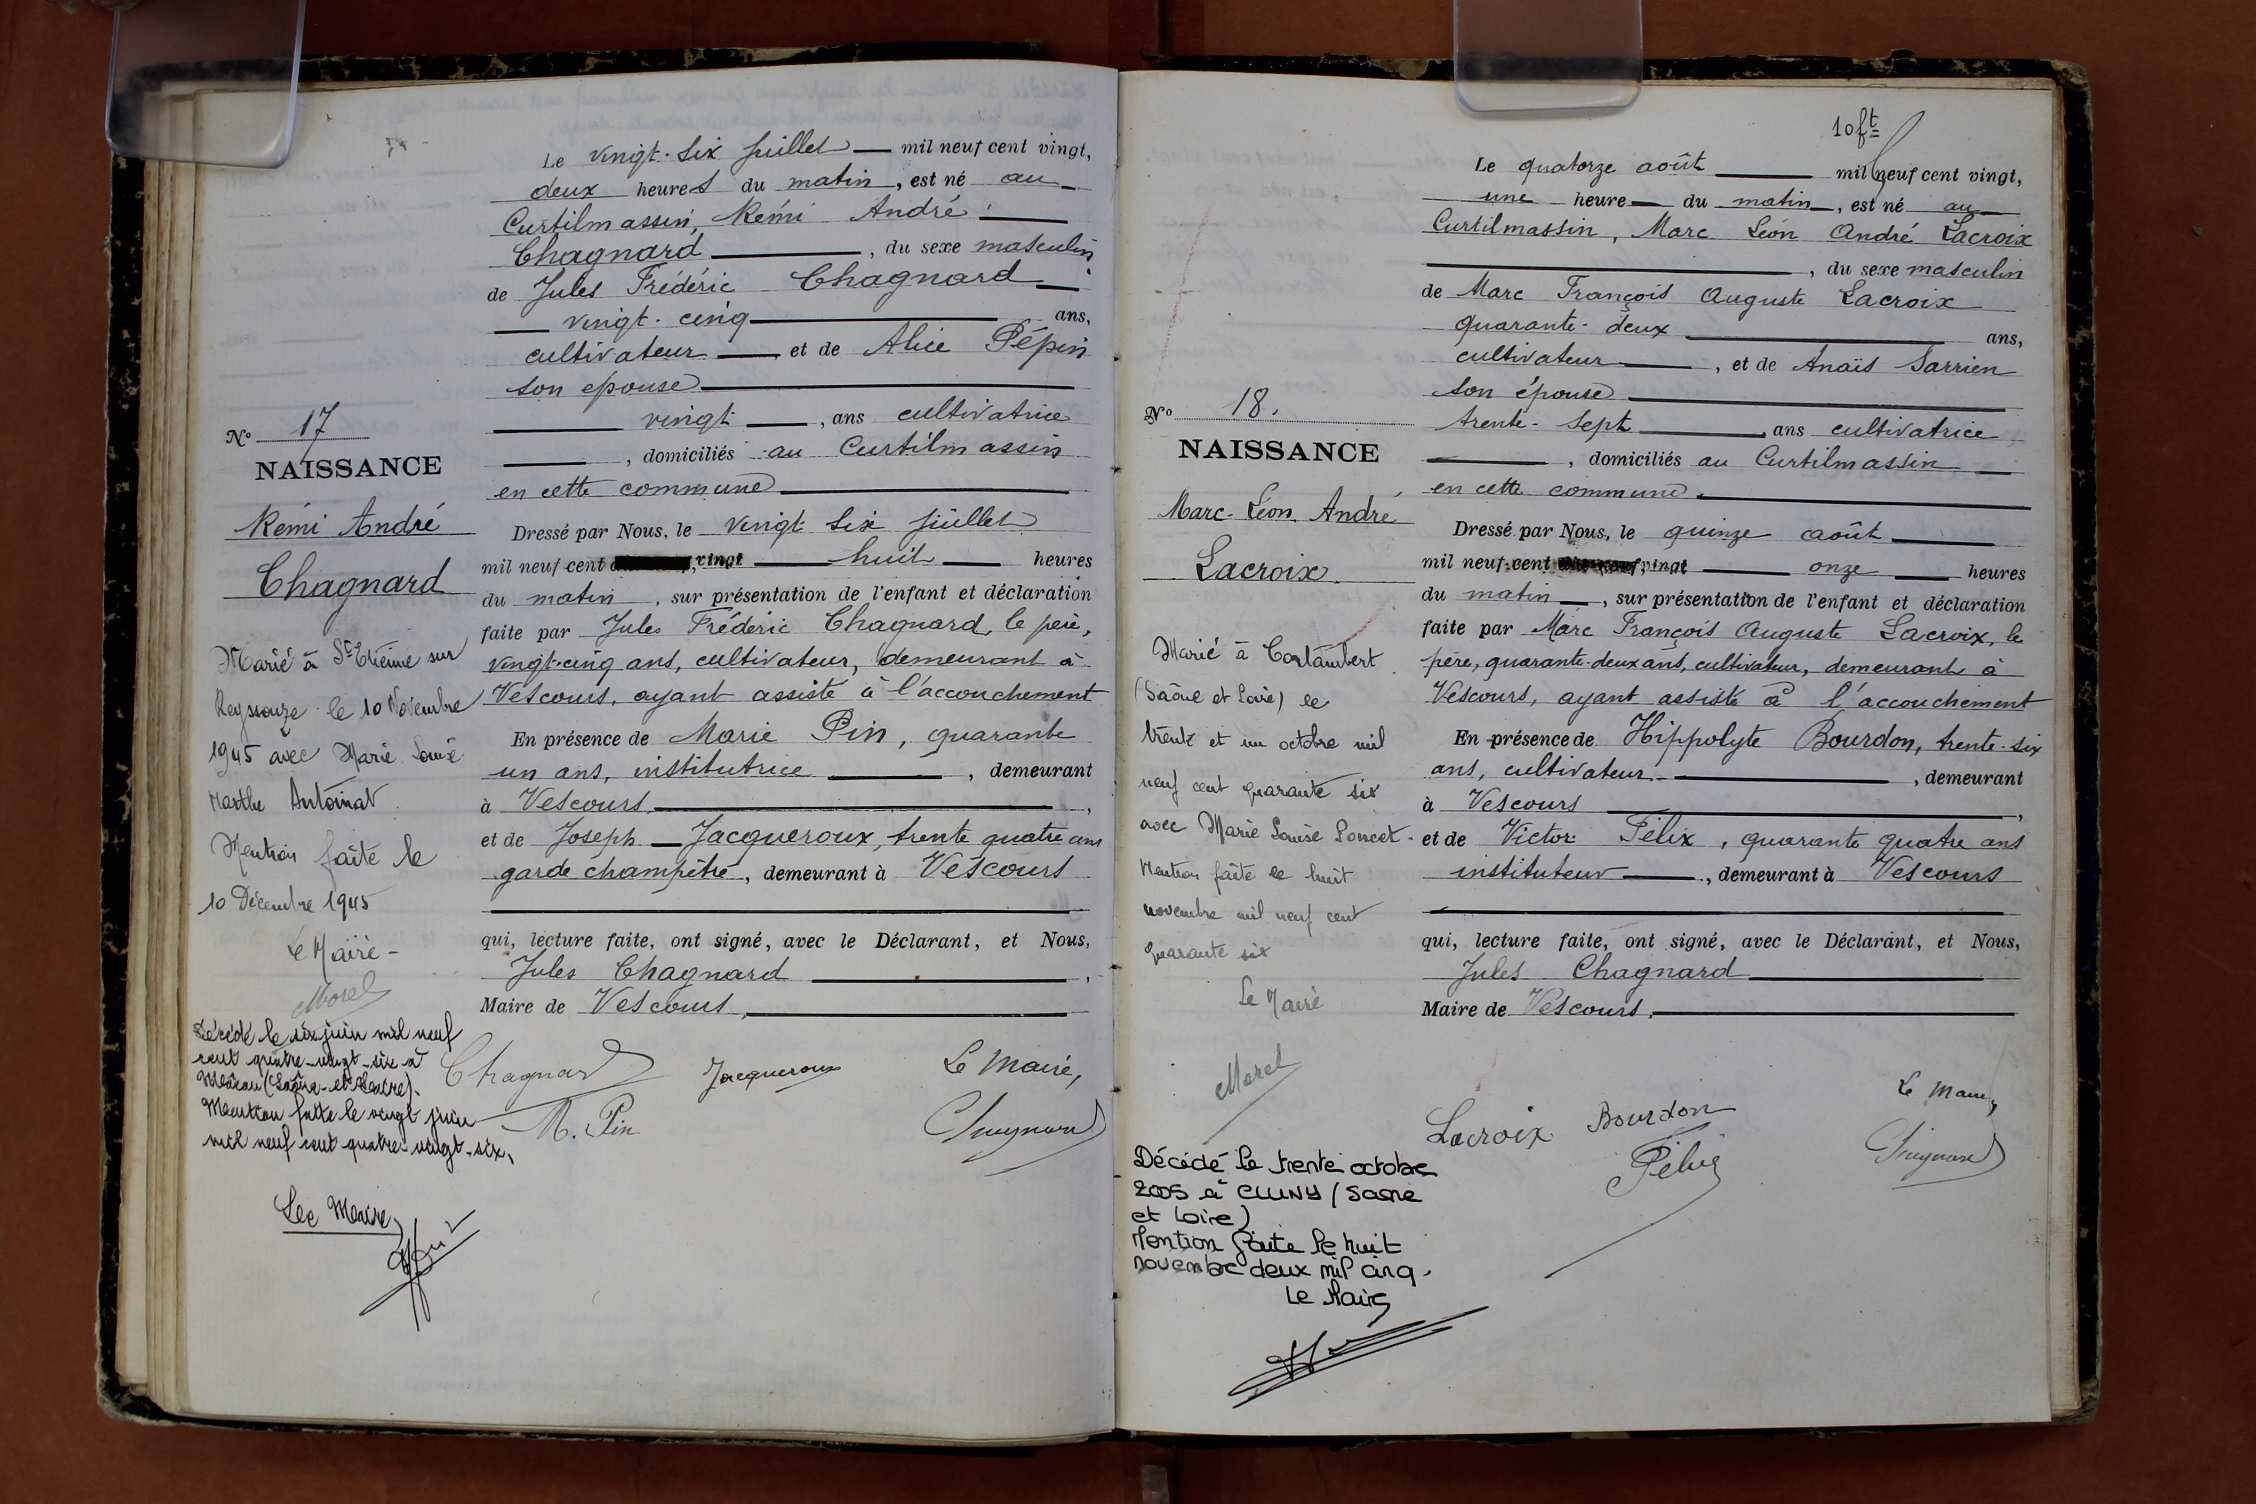 Le vingt-six juillet mil neuf cent vingt,
deux heures du matin, est né au
Curtilmassin, Rémi André
Chagnard, du sexe masculin
de Jules Frédéric Chagnard
vingt-cinq ans,
cultivateur et de Alice Pépin
son épouse
vingt, ans cultivatrice
, domiciliés au Curtilmassin
en cette commune
N° 17
NAISSANCE
Rémi André
Chagnard
Dressé par Nous, le vingt six juillet
mil neuf cent vingt huit heures
du matin, sur présentation de l'enfant et déclaration
faite par Jules Frédéric Chagnard, le père,
vingt-cinq ans, cultivateur, demeurant à
Vescours, ayant assisté à l'accouchement
En présence de Marie Pin, quarante
un ans, institutrice, demeurant
à Vescours,
et de Joseph Jacqueroux, trente quatre ans
garde champêtre, demeurant à Vescours
qui, lecture faite, ont signé, avec le Déclarant, et Nous,
Jules Chagnard,
Maire de Vescours,
Chagnard Jacqueroux Le Maire,
M. Pin Chagnard
Marié à St Etienne sur
Reyssouze le 10 Novembre
1945 avec Marie Louise
Marthe Antoinat
Mention faite le
10 Décembre 1945
Le Maire -
Morel
Décédé le six juin mil neuf
cent quatre-vingt-six à
Mâcon (Saône-et-Loire).
Mention faite le vingt juin
mil neuf cent quatre-vingt-six.
Le Maire,
10 ft
Le quatorze août mil neuf cent vingt,
une heure du matin, est né au
Curtilmassin, Marc Léon André Lacroix
, du sexe masculin
de Marc François Auguste Lacroix
quarante-deux ans,
cultivateur, et de Anaïs Sarrien
son épouse
trente-sept ans cultivatrice
, domiciliés au Curtilmassin
en cette commune.
N° 18.
NAISSANCE
Marc-Léon André
Lacroix
Dressé par Nous, le quinze août
mil neuf cent vingt onze heures
du matin, sur présentation de l'enfant et déclaration
faite par Marc François Auguste Lacroix, le
père, quarante-deux ans, cultivateur, demeurant à
Vescours, ayant assisté à l'accouchement
En présence de Hippolyte Bourdon, trente-six
ans, cultivateur, demeurant
à Vescours,
et de Victor Félix, quarante quatre ans
instituteur, demeurant à Vescours
qui, lecture faite, ont signé, avec le Déclarant, et Nous,
Jules Chagnard
Maire de Vescours,
Lacroix Bourdon Le Maire,
Félix Chagnard
Marié à Cortambert
(Saône et Loire) le
trente et un octobre mil
neuf cent quarante six
avec Marie Louise Poncet.
Mention faite le huit
novembre mil neuf cent
quarante six
Le Maire
Morel
Décédé le trente octobre
2005 à CLUNY (Saone
et Loire)
Mention faite le huit
novembre deux mil cinq.
Le Maire